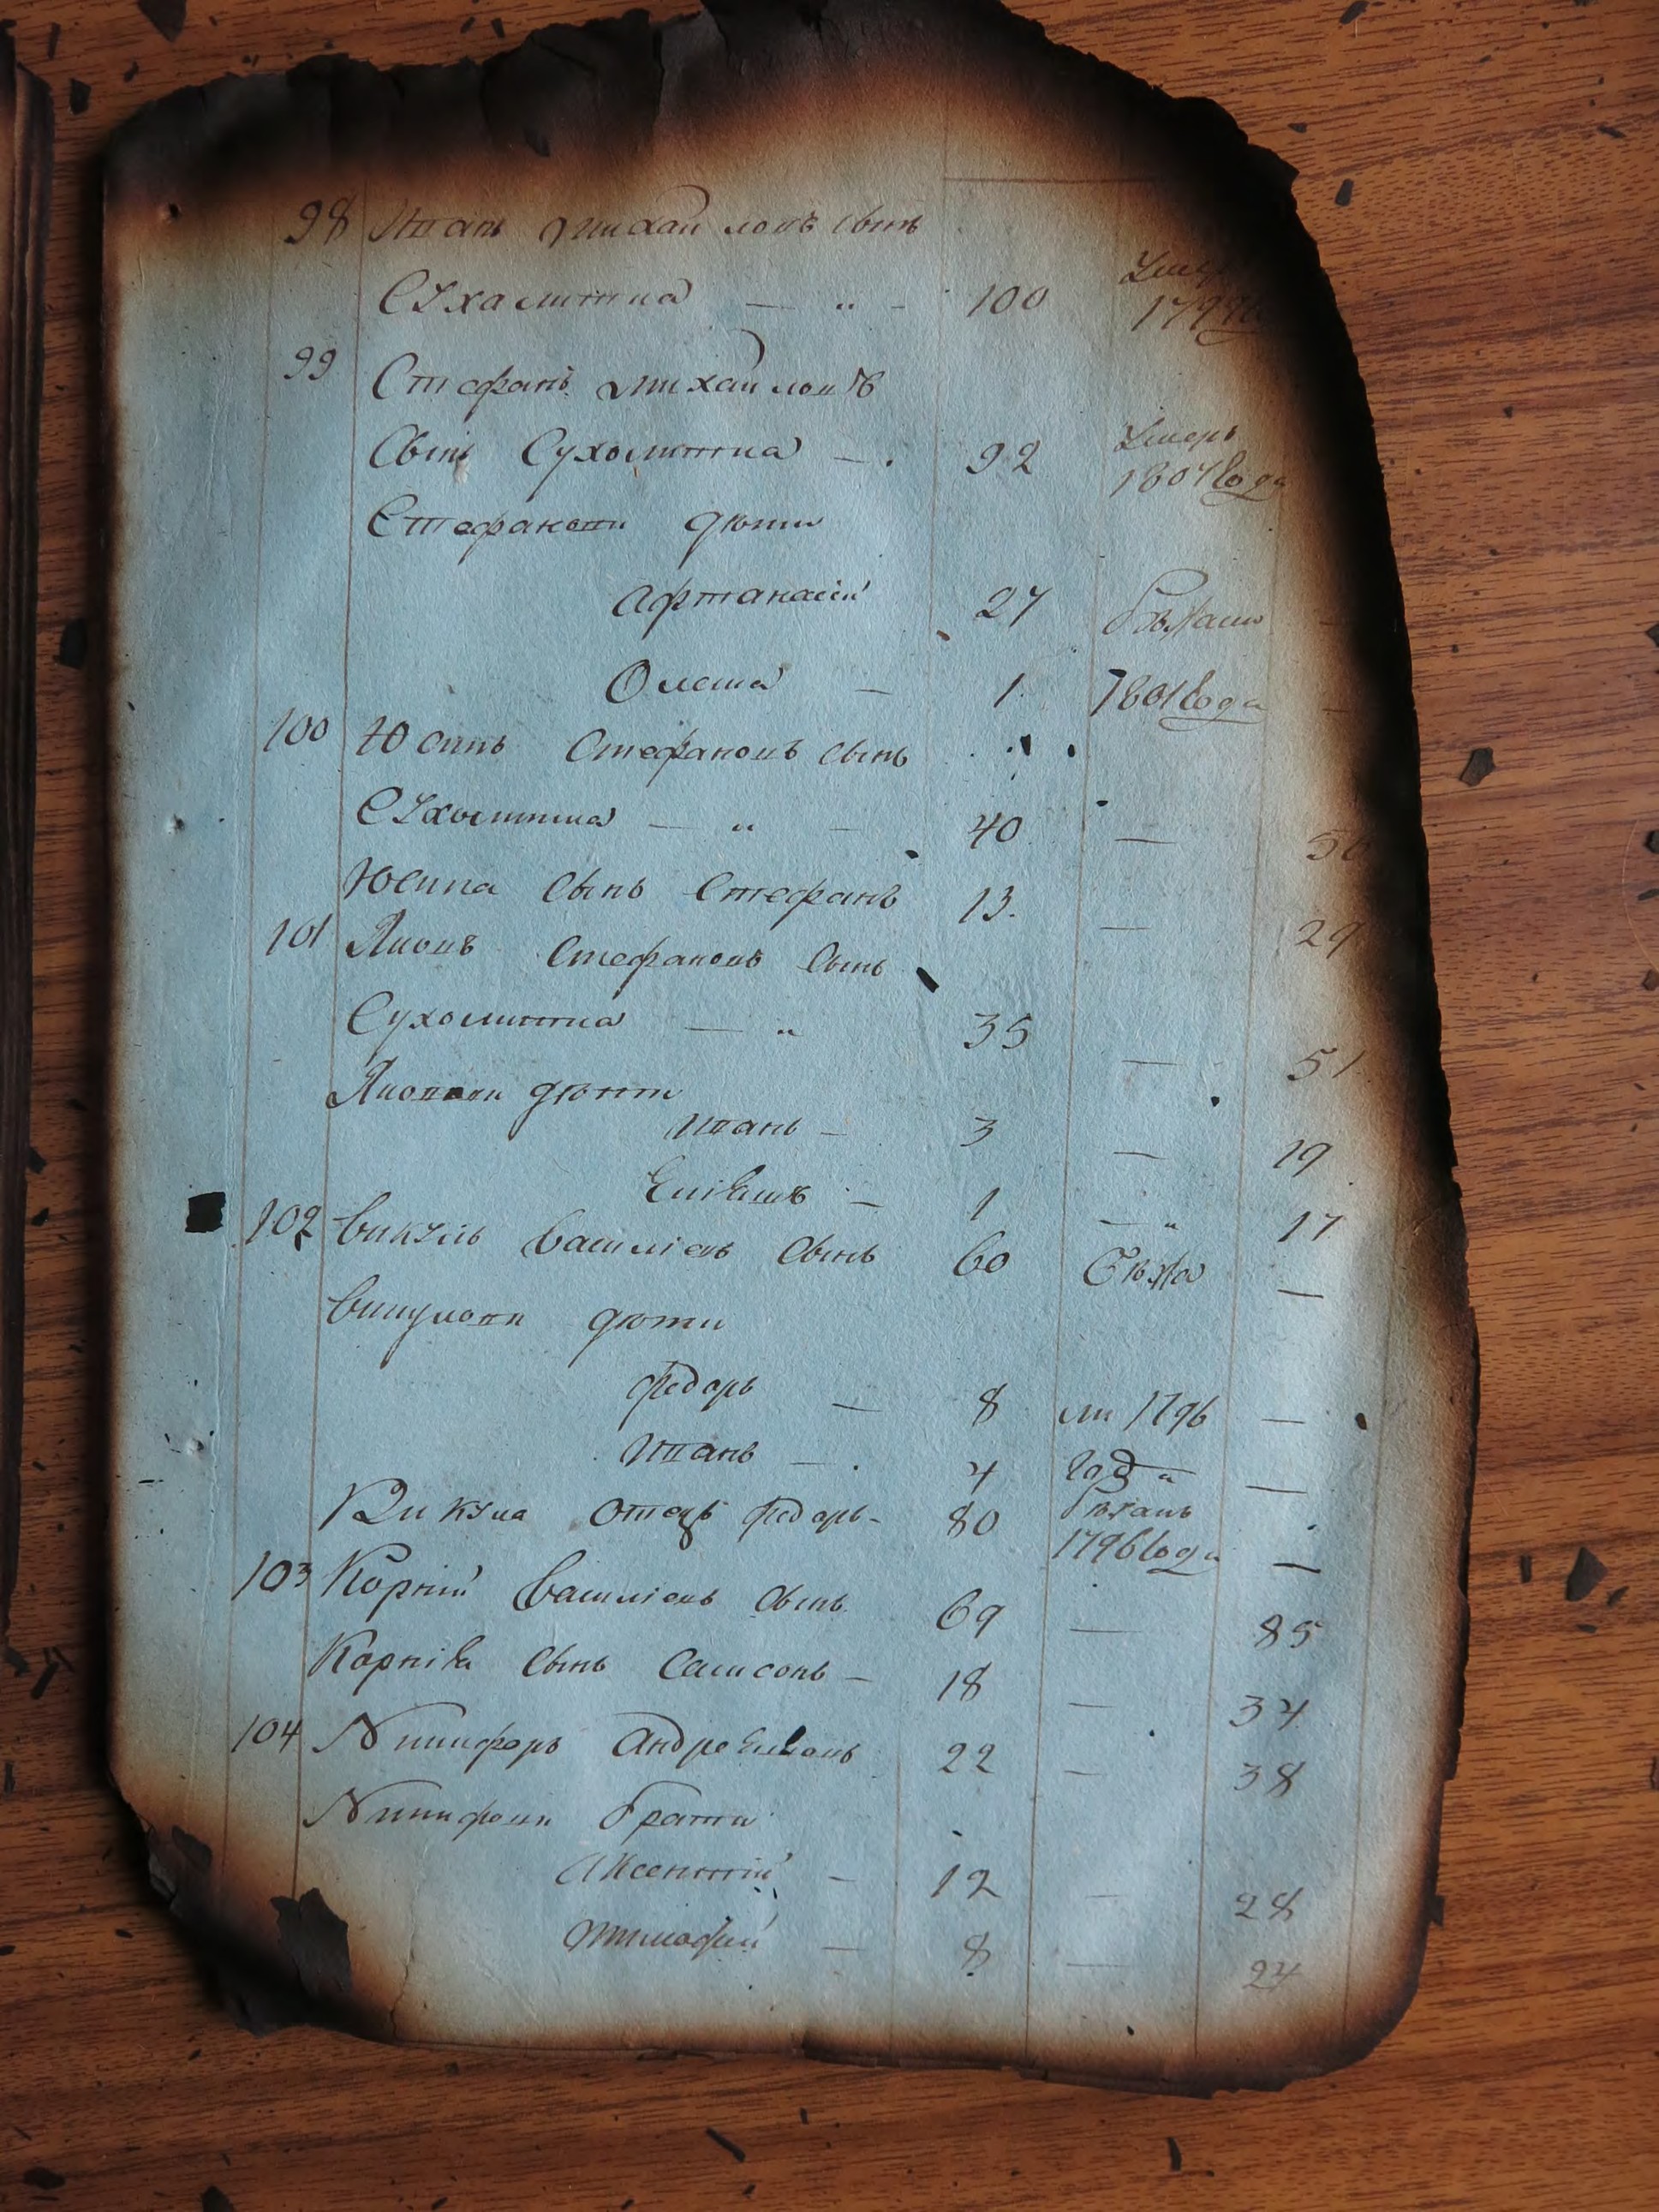 98 Иван Михайловъ сынъ
Сухалитка — „ - 100 Умер 1799
99 Стефанъ Михайловъ
Сынъ Сухолитка — . 92 Умеръ 1804 года
Стефанови дѣти
Афтанасій 27 Бѣжали —
Олекса — 1 1801 года —
100 Юсипъ Стефановъ сынъ
Сухолитка — „ — 40 — 56
Юсипа сынъ Стефанъ 13. — 29
101 Яковъ Стефановъ сынъ
Сухолитка — „ 35 — 51
Якови дѣти
Иванъ — 3 — 19
— 1 — „ 17
102 Викулъ Василіевъ сынъ 60 Бѣжа —
Викулови дѣти
Федоръ — 8 ли 1796 —
Иванъ — . 4 года —
Викула отецъ Федоръ - 80 Бѣжалъ 1796 года —
103 Корній Василіевъ сынъ 69 — 85
Корнія сынъ Самсонъ — 18 — 34
104 Никифоръ Андреевъ 22 — 38
Никифори брати
Аксентій — 12 — 28
Тимофій — 8 — 24